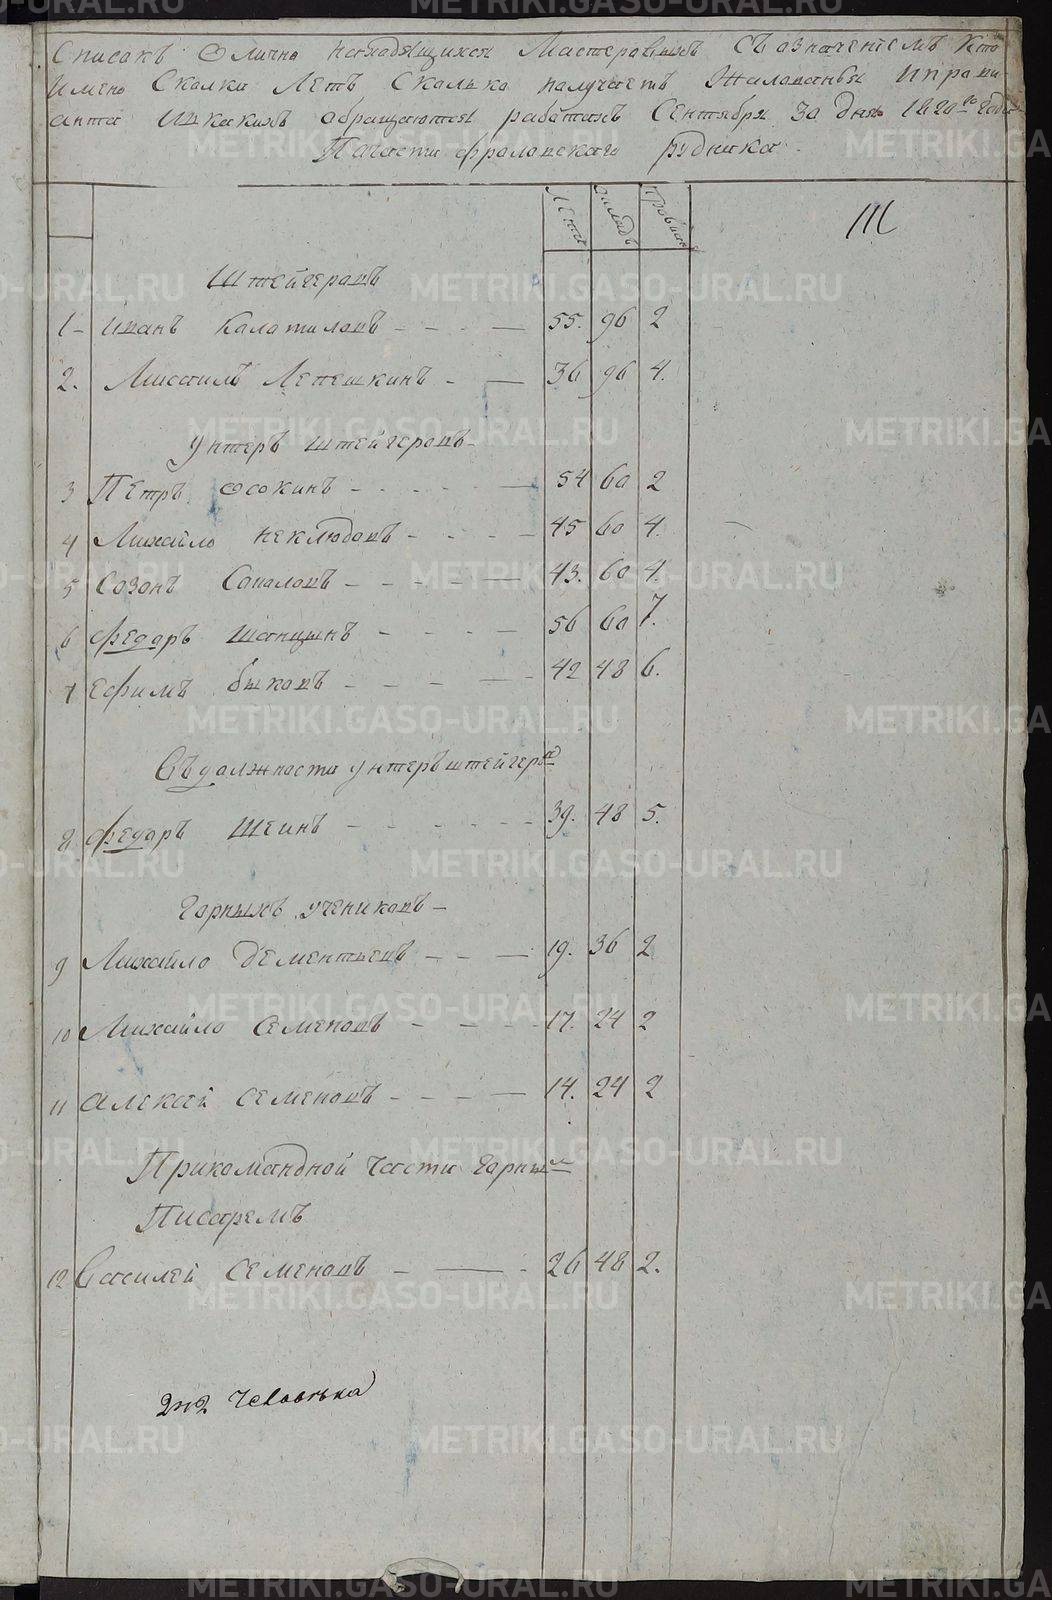 Списокъ Олично находящихся Мастеровыхъ съ азначениемъ кто
имено Сколки Летъ Сколько палучаетъ Жалованья ипрови
анта икакимъ обращаются работамъ Сентября 30 дня 1820го Года
Пачасти Фраловскаго рудника.
Лета окладъ Правиа
111
Штейгеровъ
1- Иванъ Калотиловъ 55. 96 2
2. Михаилъ Лепешкинъ 36 96 4.
Унтеръ штейгеровъ
3 Петръ Осокинъ 54 60 2
4 Михайло неклюдовъ 45 60 4.
5 Созонъ Сапаловъ 43. 60 4.
6 Федаръ Шанцынъ 56 60 7.
7 Ефимъ быковъ 42 48 6.
Въ должности унтеръ штейгера
8 Федаръ Шеинъ 39. 48 5.
Горныхъ учениковъ
9 Михайло Дементьевъ 19. 36 2
10 Михайло Семеновъ 17. 24 2
11 Алексей Семеновъ 14. 24 2
Прикомандной части горнымъ
Писаремъ
12 Василей Семеновъ 26 48 2.
человека
METRIKI.GASO-URAL.RU